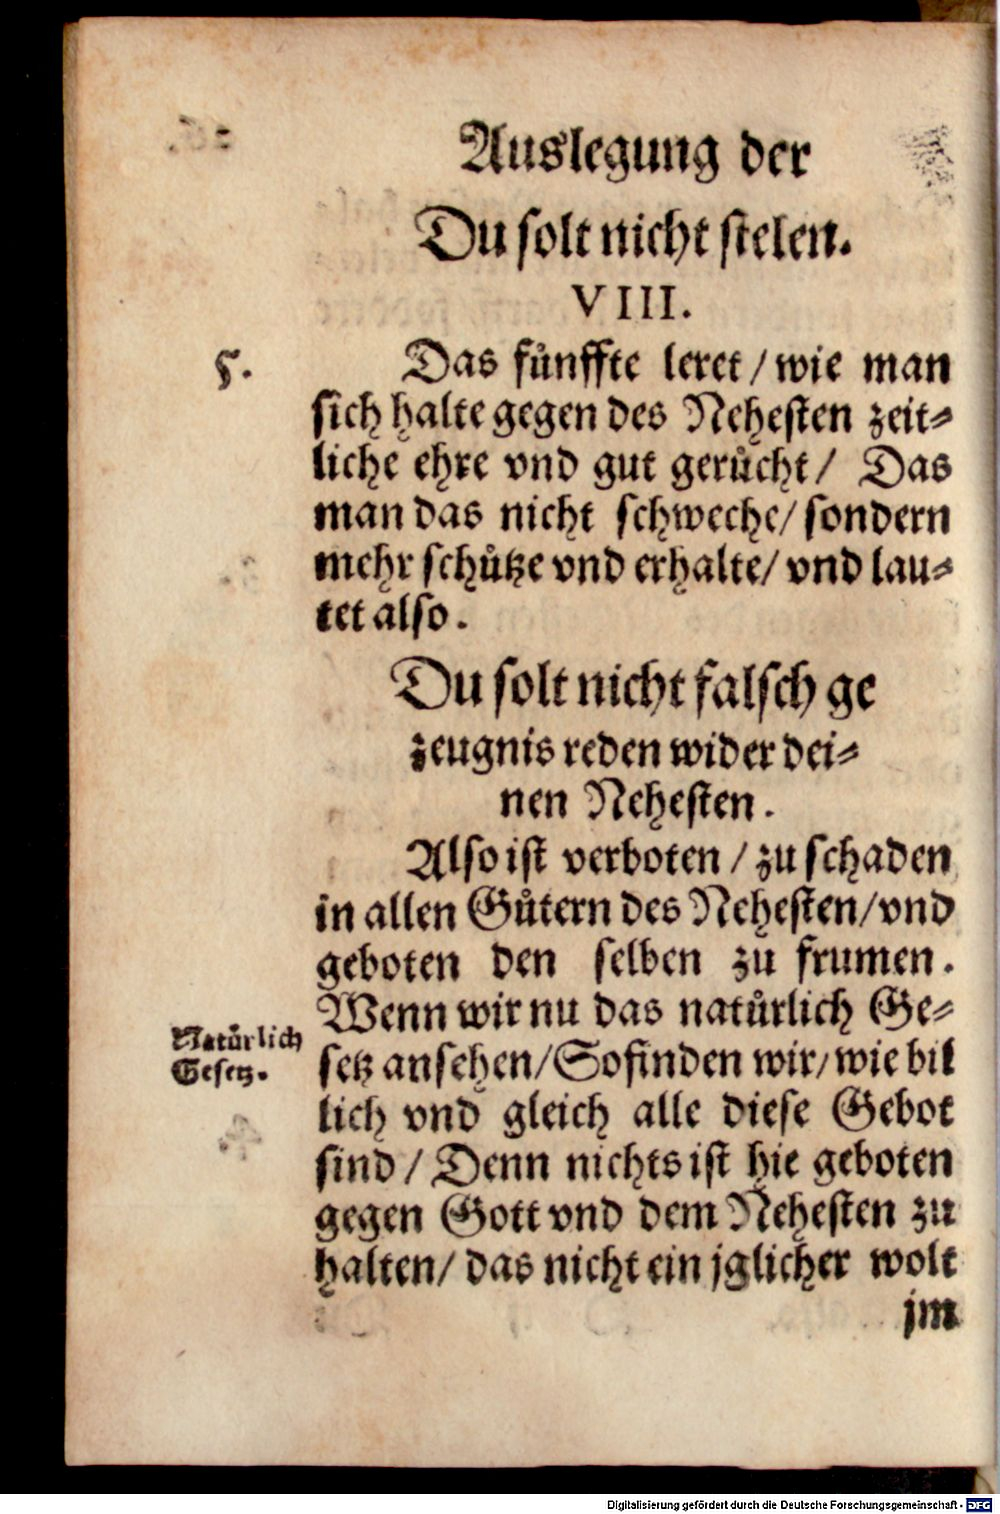 Auslegung der
Du solt nicht stelen.
VIII.
5.
Das fůnffte leret / wie man
sich halte gegen des Nehesten zeit⸗
liche ehre vnd gut gerůcht / Das
man das nicht schweche / sondern
mehr schůtze vnd erhalte / vnd lau⸗
tet also.
Du solt nicht falsch ge
zeugnis reden wider dei⸗
nen Nehesten.
Also ist verboten / zu schaden
in allen Gůtern des Nehesten / vnd
geboten den selben zu frumen.
Wenn wir nu das natůrlich Ge⸗
Natůrlich
Gesetz.
setz ansehen / So finden wir / wie bil
lich vnd gleich alle diese Gebot
sind / Denn nichts ist hie geboten
gegen Gott vnd dem Nehesten zu
halten / das nicht ein jglicher wolt
jm
Digitalisierung gefördert durch die Deutsche Forschungsgemeinschaft - DFG